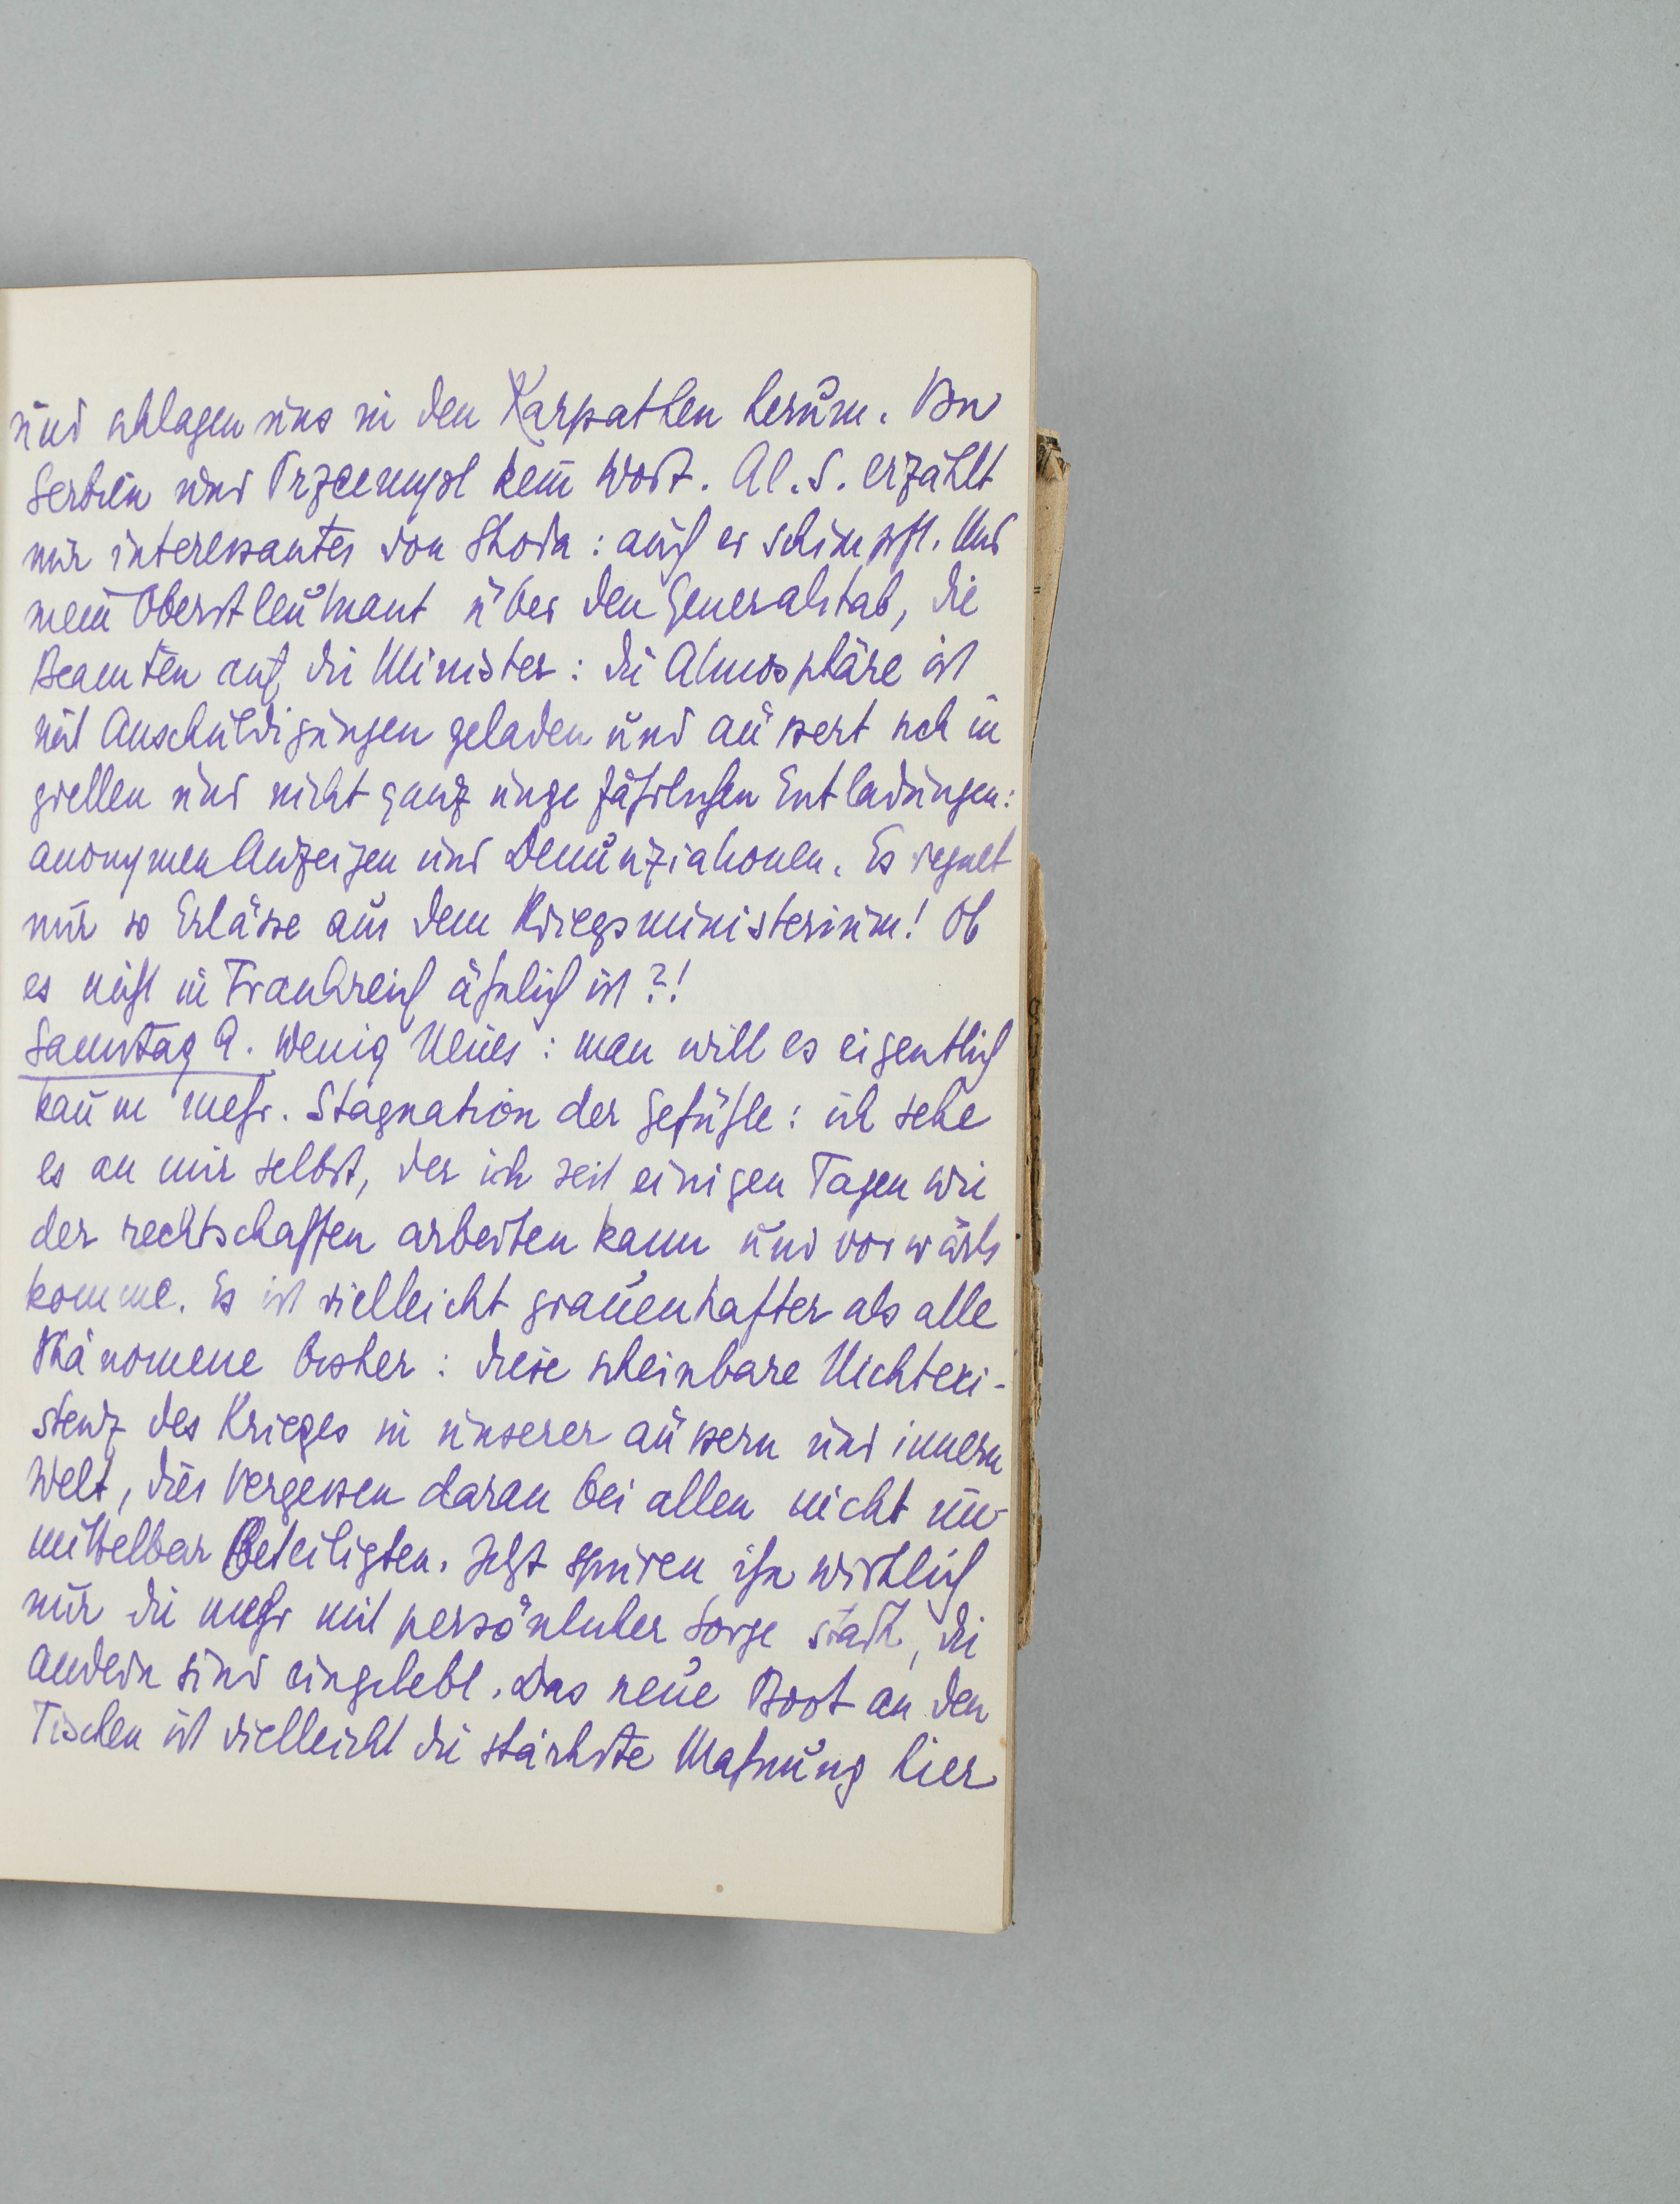 und schlagen uns in den Karpathen herum. Von
Serbien und Przemysl kein Wort. Al. S. erzählt
mir interessantes von Skoda: auch er schimpft. Und
mein Oberstleutnant über den Generalstab, die
Beamten auf die Minister: die Atmosphäre ist
mit Anschuldigungen geladen und äussert sich in
grellen und nicht ganz ungefährlichen Entladungen:
anonymen Anzeigen und Denunziationen. Es regnet
nur so Erlässe aus dem Kriegsministerium! Ob
es nicht in Frankreich ähnlich ist?!
Samstag 9. Wenig Neues: man will es eigentlich
kaum mehr. Stagnation der Gefühle: ich sehe
es an mir selbst, der ich seit einigen Tagen wie
der rechtschaffen arbeiten kann und vorwärts
komme. Es ist vielleicht grauenhafter als alle
Phänomene bisher: diese scheinbare Nichtexi-
stenz des Krieges in unserer äussern und innern
Welt, dies Vergessen daran bei allen nicht un-
mittelbar Beteiligten. Jetzt spüren ihn wirklich
nur die mehr mit persönlicher Sorge statt, die
andern sind eingelebt. Das neue Brot an den
Tischen ist vielleicht die stärkste Mahnung hier